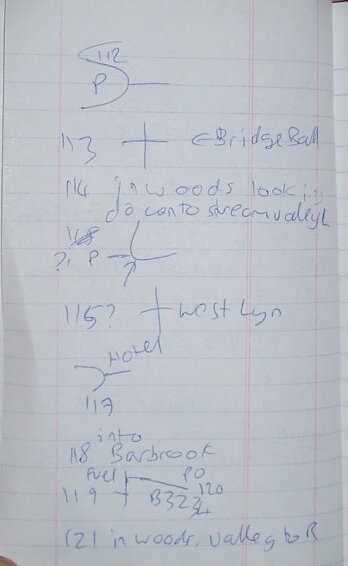 112
P
113 ← Bridge Ball
114 In woods looking
down to stream valley L
?. P
115? West Lyn
Hotel
117
into
118 Barbrook
Fuel PO
119 B3234 120
121 in woods, valley to R